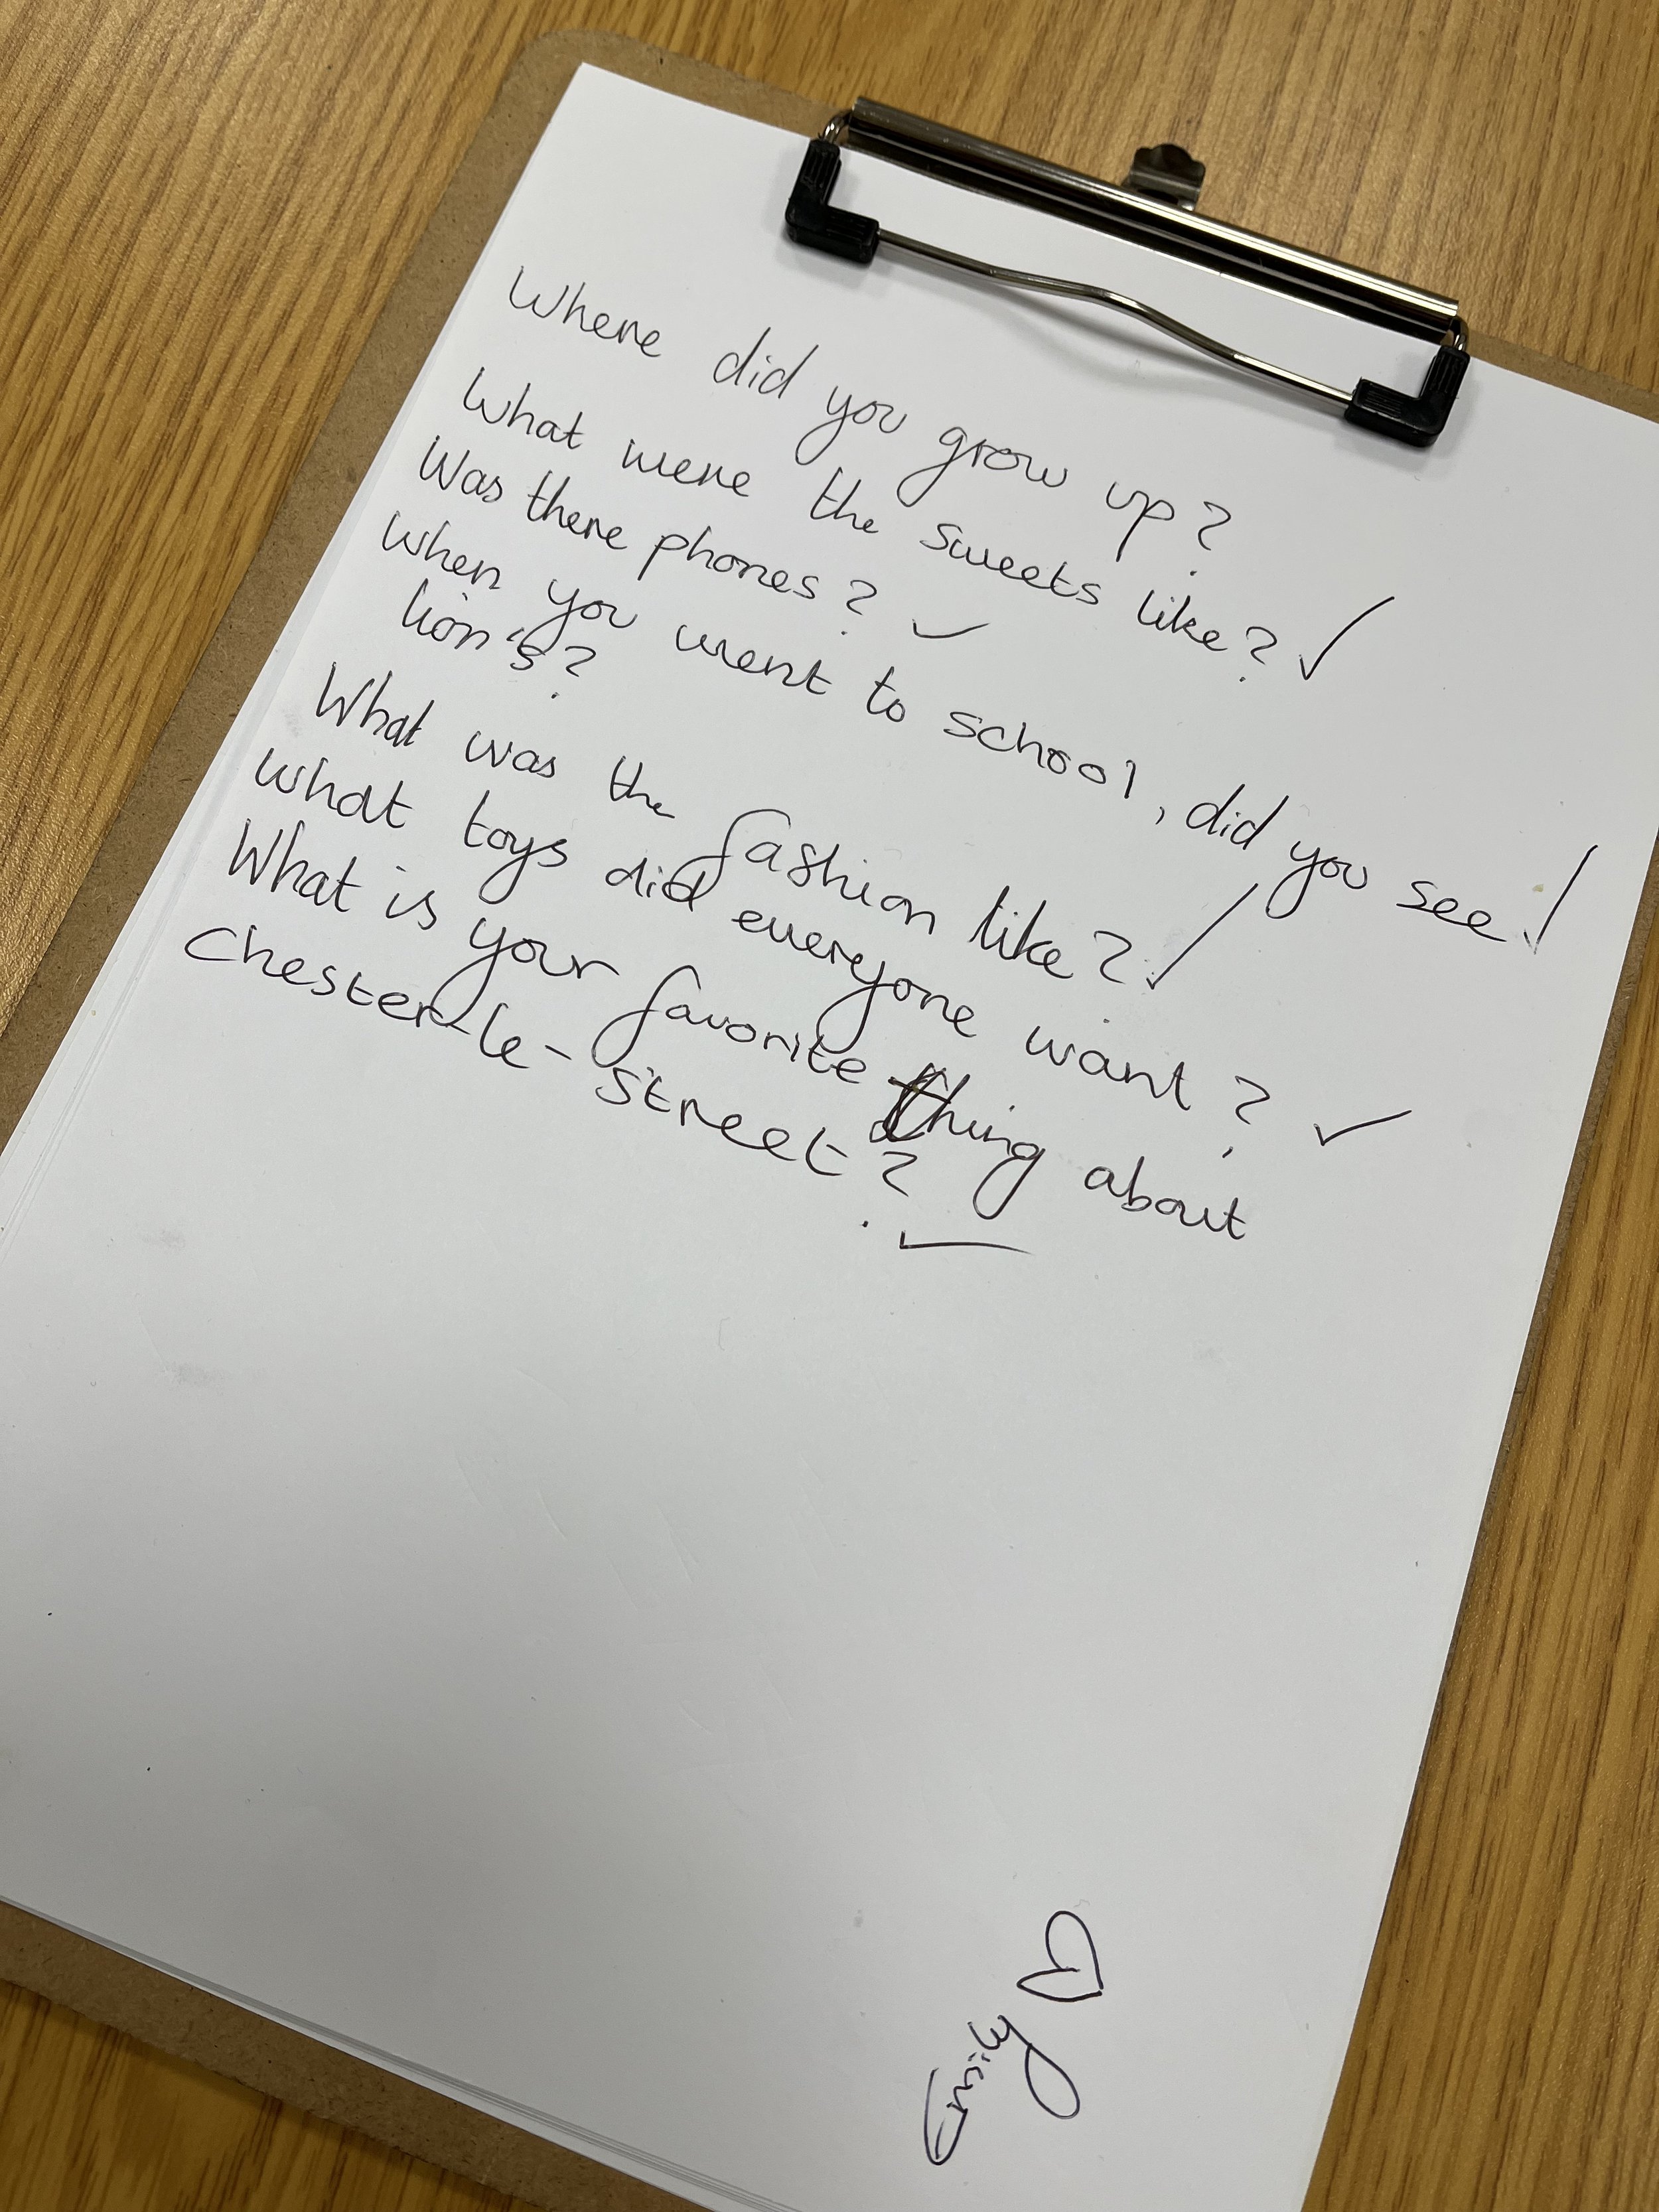 Where did you grow up?
What were the sweets like? ✓
Was there phones? ✓
When you went to school, did you see ✓
lion's?
What was the fashion like? ✓
What toys did everyone want? ✓
What is your favorite thing about
Chester-le-street? ✓